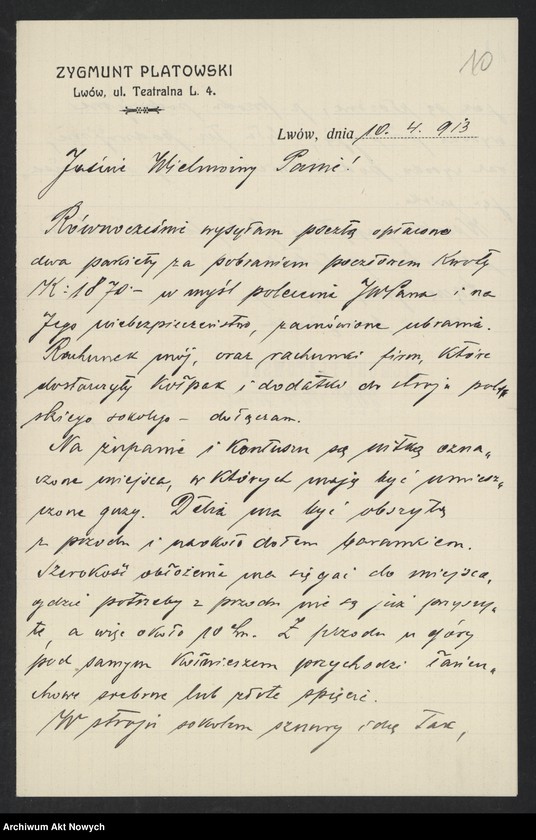 10
ZYGMUNT PLATOWSKI
Lwów, ul. Teatralna L. 4.
Lwów, dnia 10. 4. 913
Jaśnie Wielmożny Panie!
Równocześnie wysyłam pocztą opłacone
dwa pakiety za pobraniem pocztowem kwoty
K: 1870 - w myśl polecenia JWPana i na
Jego niebezpieczeństwo, zamówione ubrania.
Rachunek mój, oraz rachunki firm, które
dostarczyły kołpak i dodatki do stroju pol„
skiego sokolego - dołączam.
Na żupanie i kontuszu są nitką ozna„
czone miejsca, w których mają być umiesz„
czone guzy. Delia ma być obszytą
z przodu i naokoło dołem barankiem.
Szerokość obłożenia ma sięgać do miejsca,
gdzie potrzeby z przodu nie są już przyszy„
te, a więc około 10 cm. Z przodu u góry
pod samym kołnierzem przychodzi łańcu„
chowe srebrne lub złote spięcie.
W stroju sokolem sznury idą tak,
Archiwum Akt Nowych